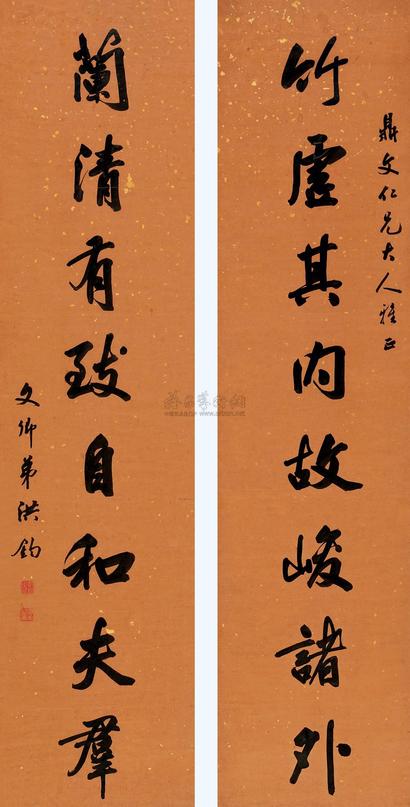 鼎文仁兄大人雅正
竹虛其内故峻諸外
蘭清有致自和夫羣
文卿弟洪鈞